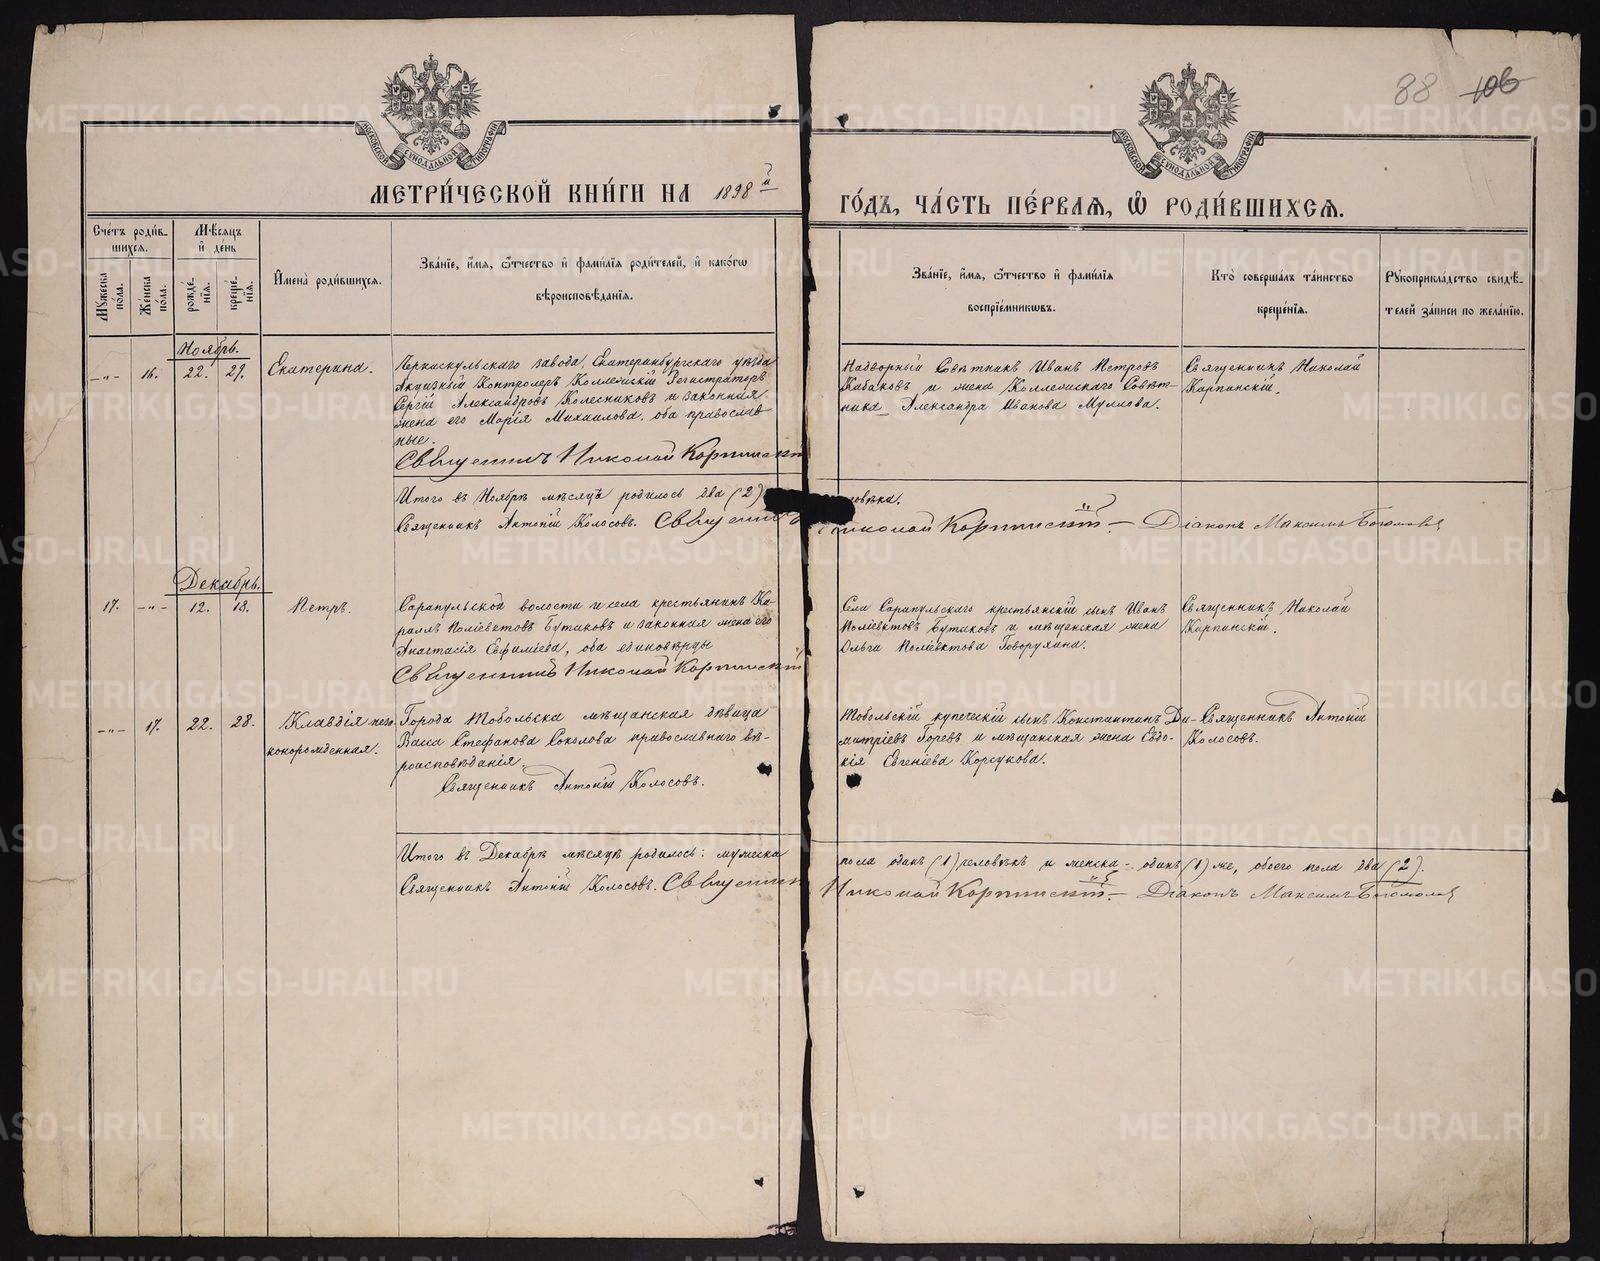 88 106
МОСКОВСКОЙ СѴНОДАЛЬНОЙ ТИПОГРАФИИ
МОСКОВСКОЙ СѴНОДАЛЬНОЙ ТИПОГРАФИИ
МЕТРИ́ЧЕСКОЙ КНИ́ГИ НА 1898й
ГО́ДЪ, ЧА́СТЬ ПЕ́РВАѦ, Ѡ҆ РОДИ́ВШИХСѦ.
Сче́тъ роди́в-
шихся.
Мѣ́сяцъ
и҆ де́нь
Мꙋ́жеска по́ла.
Же́нска по́ла.
рожде́-
нїя.
креще́-
нїя.
И҆мена̀ роди́вшихся.
Зва́нїе, и҆́мя, ѻ҆́тчество и҆ фами́лїя роди́телей, и҆ како́гѡ
вѣроисповѣ́данїя.
Зва́нїе, и҆́мя, ѻ҆́тчество и҆ фами́лїя
воспрїе́мникѡвъ.
Кто̀ соверша́лъ та́инство
креще́нїя.
Рꙋкоприкла́дство свидѣ́-
телей за́писи по жела́нїю.
Ноябрь.
-„- 16. 22. 29. Екатерина.
Черкаскульскаго завода, Екатеринбургскаго уѣзда
Акцизный Контролеръ Коллежскій Регистраторъ
Сергій Александровъ Колесниковъ и законная
жена его Марія Михаилова, оба православ
ные.
Священникъ Николай Карпинскій
Надворный Совѣтникъ Иванъ Петровъ
Кабаковъ и жена Коллежскаго Совѣт-
ника Александра Иванова Муллова.
Священникъ Николай
Карпинскій.
Итого въ Ноябрѣ мѣсяцѣ родилось два (2) ловѣка.
Священникъ Антоній Колосовъ. Священникъ Николай Карпинскій. — Діаконъ Максимъ Богомоловъ
Декабрь.
17. -„- 12. 13. Петръ.
Сарапульской волости и села крестьянинъ Ка-
Поліевктовъ Бутаковъ и законная жена его
Анастасія Евфиміева, оба единовѣрцы
Священникъ Николай Карпинскій
Села Сарапульскаго крестьянскій сынъ Иванъ
Поліевктовъ Бутаковъ и мѣщанская жена
Ольга Поліевктова Говорухина.
Священникъ Николай
Карпинскій.
-„- 17. 22. 28. Клавдія неза-
конорожденная.
Города Тобольска мѣщанская дѣвица
Васса Стефанова Соколова православнаго вѣ-
роисповѣданія.
Священникъ Антоній Колосовъ.
Тобольскій купеческій сынъ Константинъ Ди-
митріевъ Горевъ и мѣщанская жена Евдо-
кія Евгеніева Корсукова.
Священникъ Антоній
Колосовъ.
Итого въ Декабрѣ мѣсяцѣ родилось: мужеска пола одинъ (1) человѣкъ и женска - одинъ (1) же, обоего пола два (2).
Священникъ Антоній Колосовъ. Священникъ Николай Карпинскій. — Діаконъ Максимъ Богомоловъ
METRIKI.GASO-URAL.RU